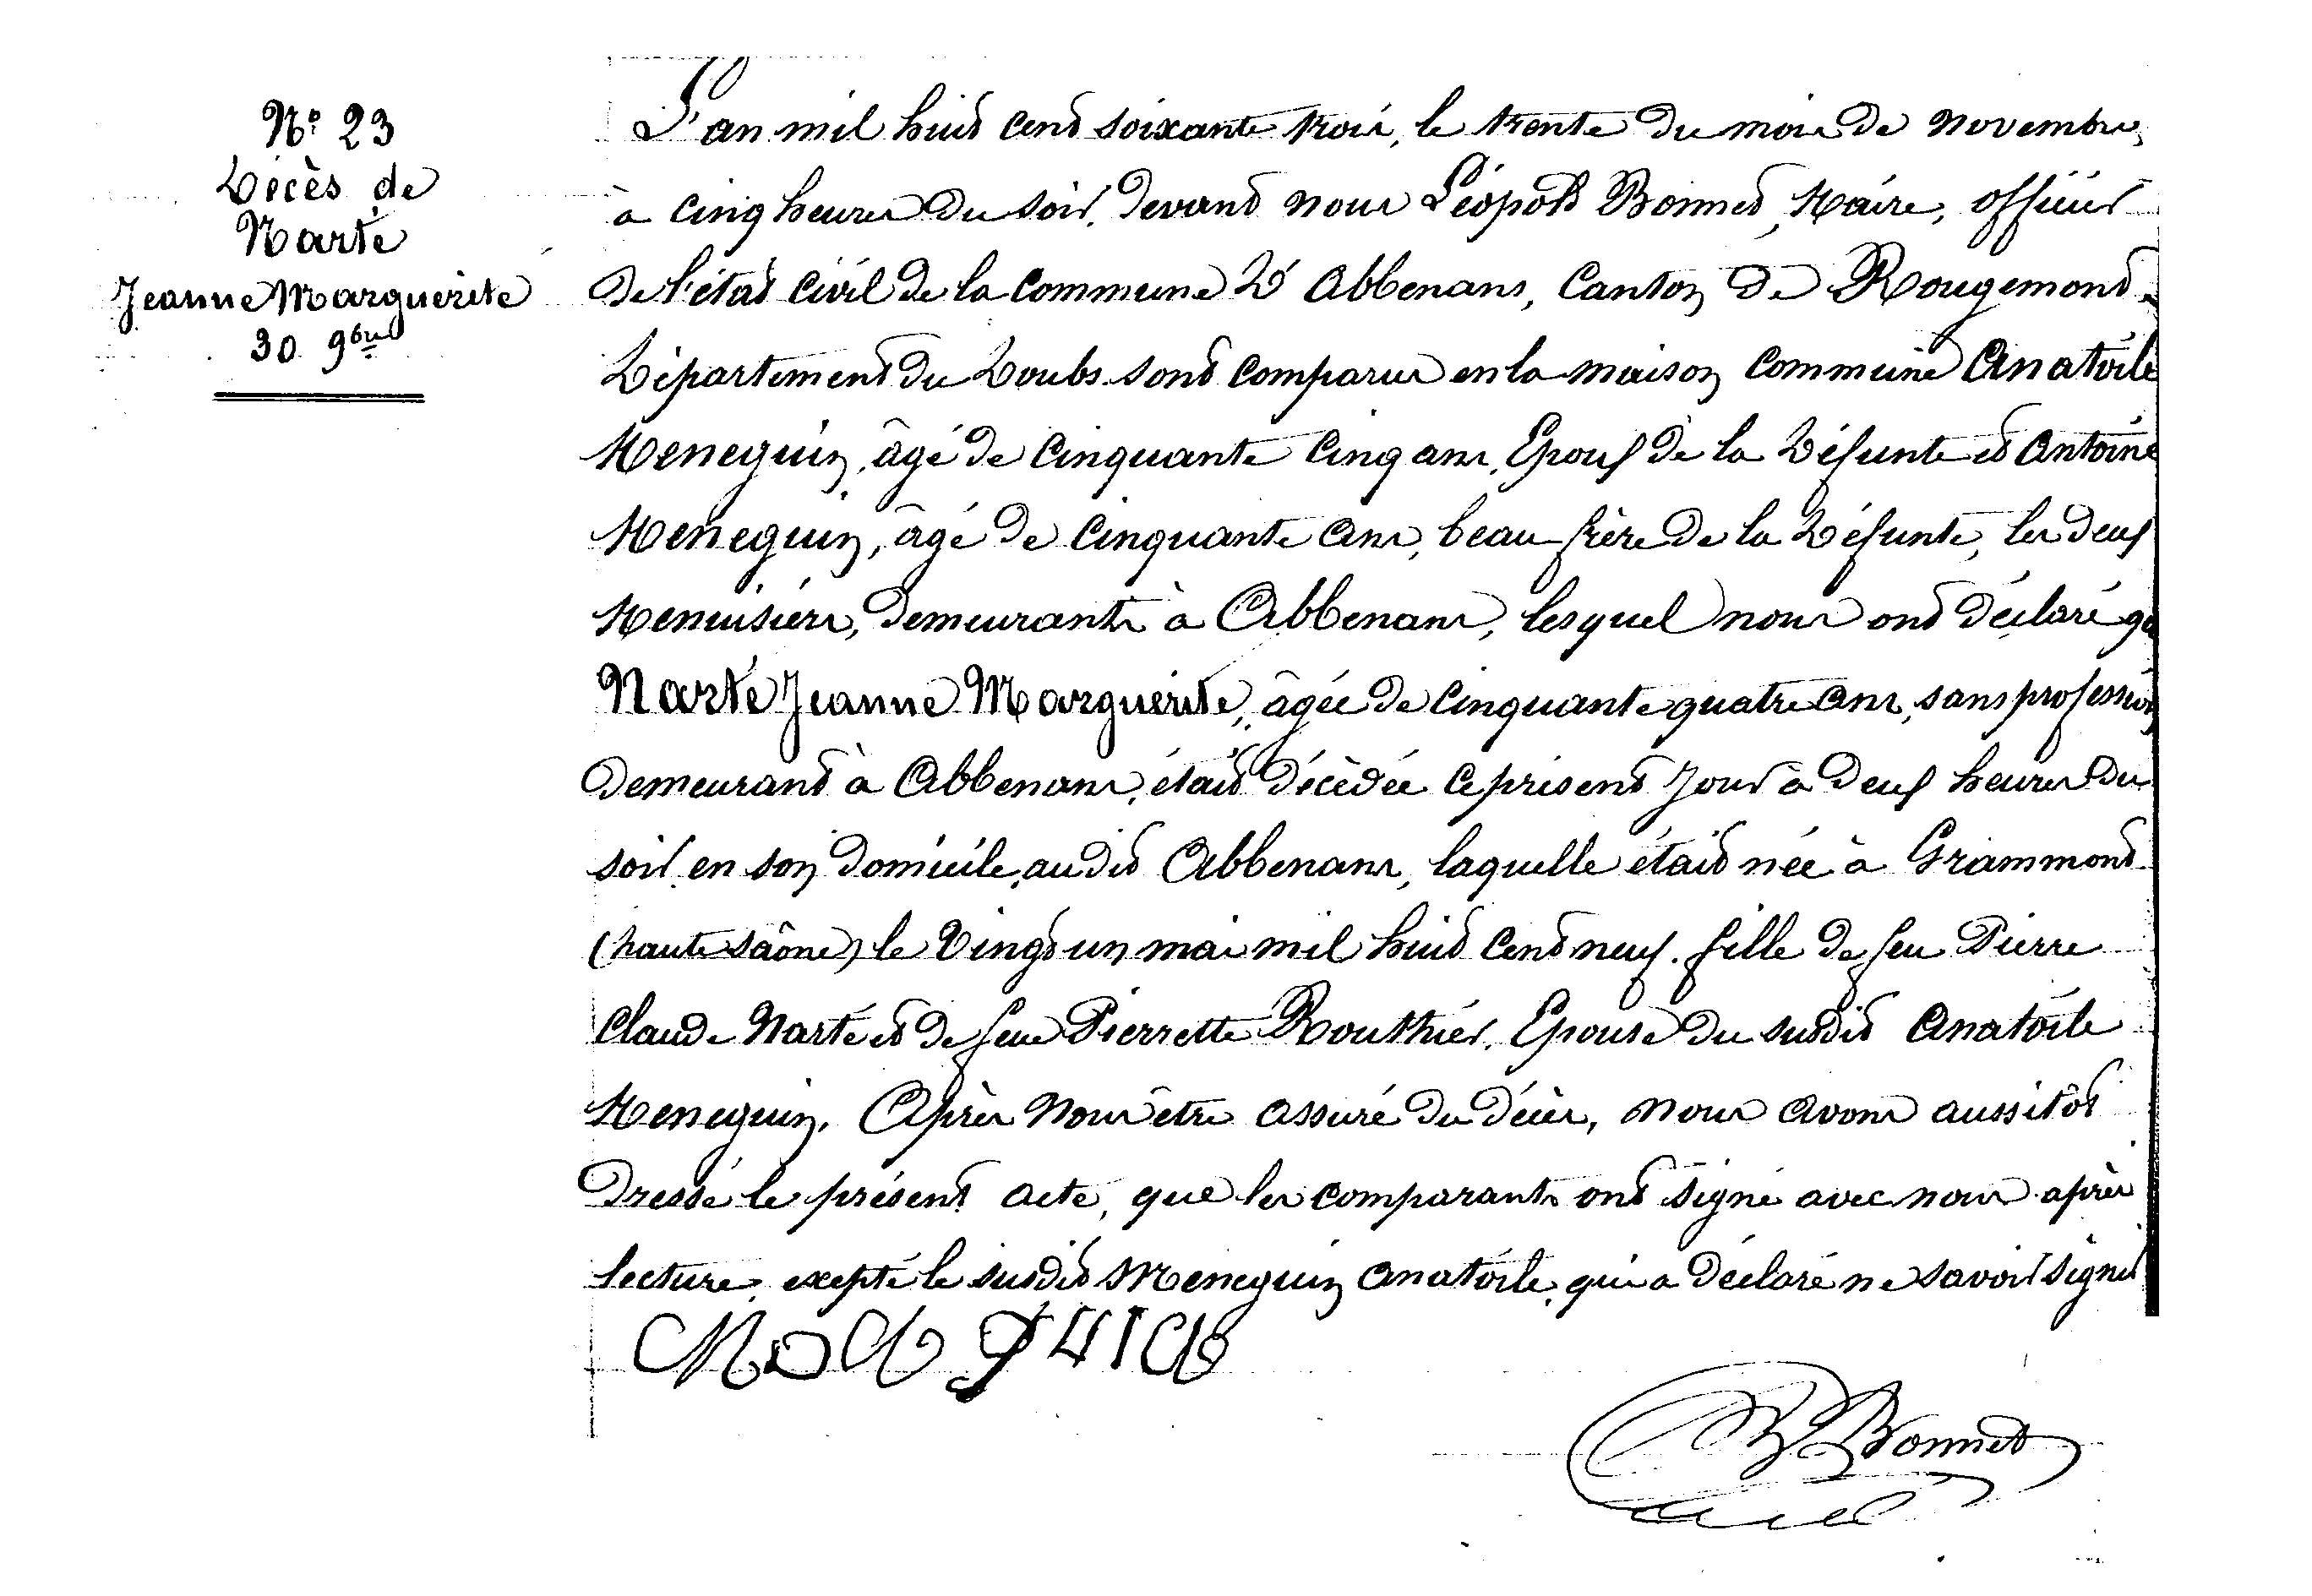 N° 23
Décès de
Narte
Jeanne Marguerite
30 9bre
L'an mil huit cent soixante trois, le trente du mois de novembre,
à cinq heures du soir, devant nous Léopold Bonnet, Maire, officier
de l'état civil de la commune d'Abbenans, Canton de Rougemont
Département du Doubs sont comparus en la maison commune Anatoile
Meneguin, âgé de cinquante cinq ans, Epoux de la Défunte et Antoine
Meneguin, âgé de cinquante ans, beau frère de la Défunte, les deux
Menuisiers, demeurants à Abbenans, lesquel nous ont déclaré que
Narte Jeanne Marguerite, âgée de cinquante quatre ans, sans profession
demeurant à Abbenans, était décédée ce présent jour à deux heures du
soir en son domicile audit Abbenans, laquelle était née à Grammont
(haute saône) le vingt un mai mil huit cent neuf. fille de feu Pierre
Claude Narte et de feue Pierrette Routhier. Epouse du susdit Anatoile
Meneguin. Après nous être assuré du décès, nous avons aussitôt
dressé le présent acte, que les comparants ont signé avec nous après
lecture, exepté le susdit Meneguin Anatoile, qui a déclaré ne savoir signer
Bonnet